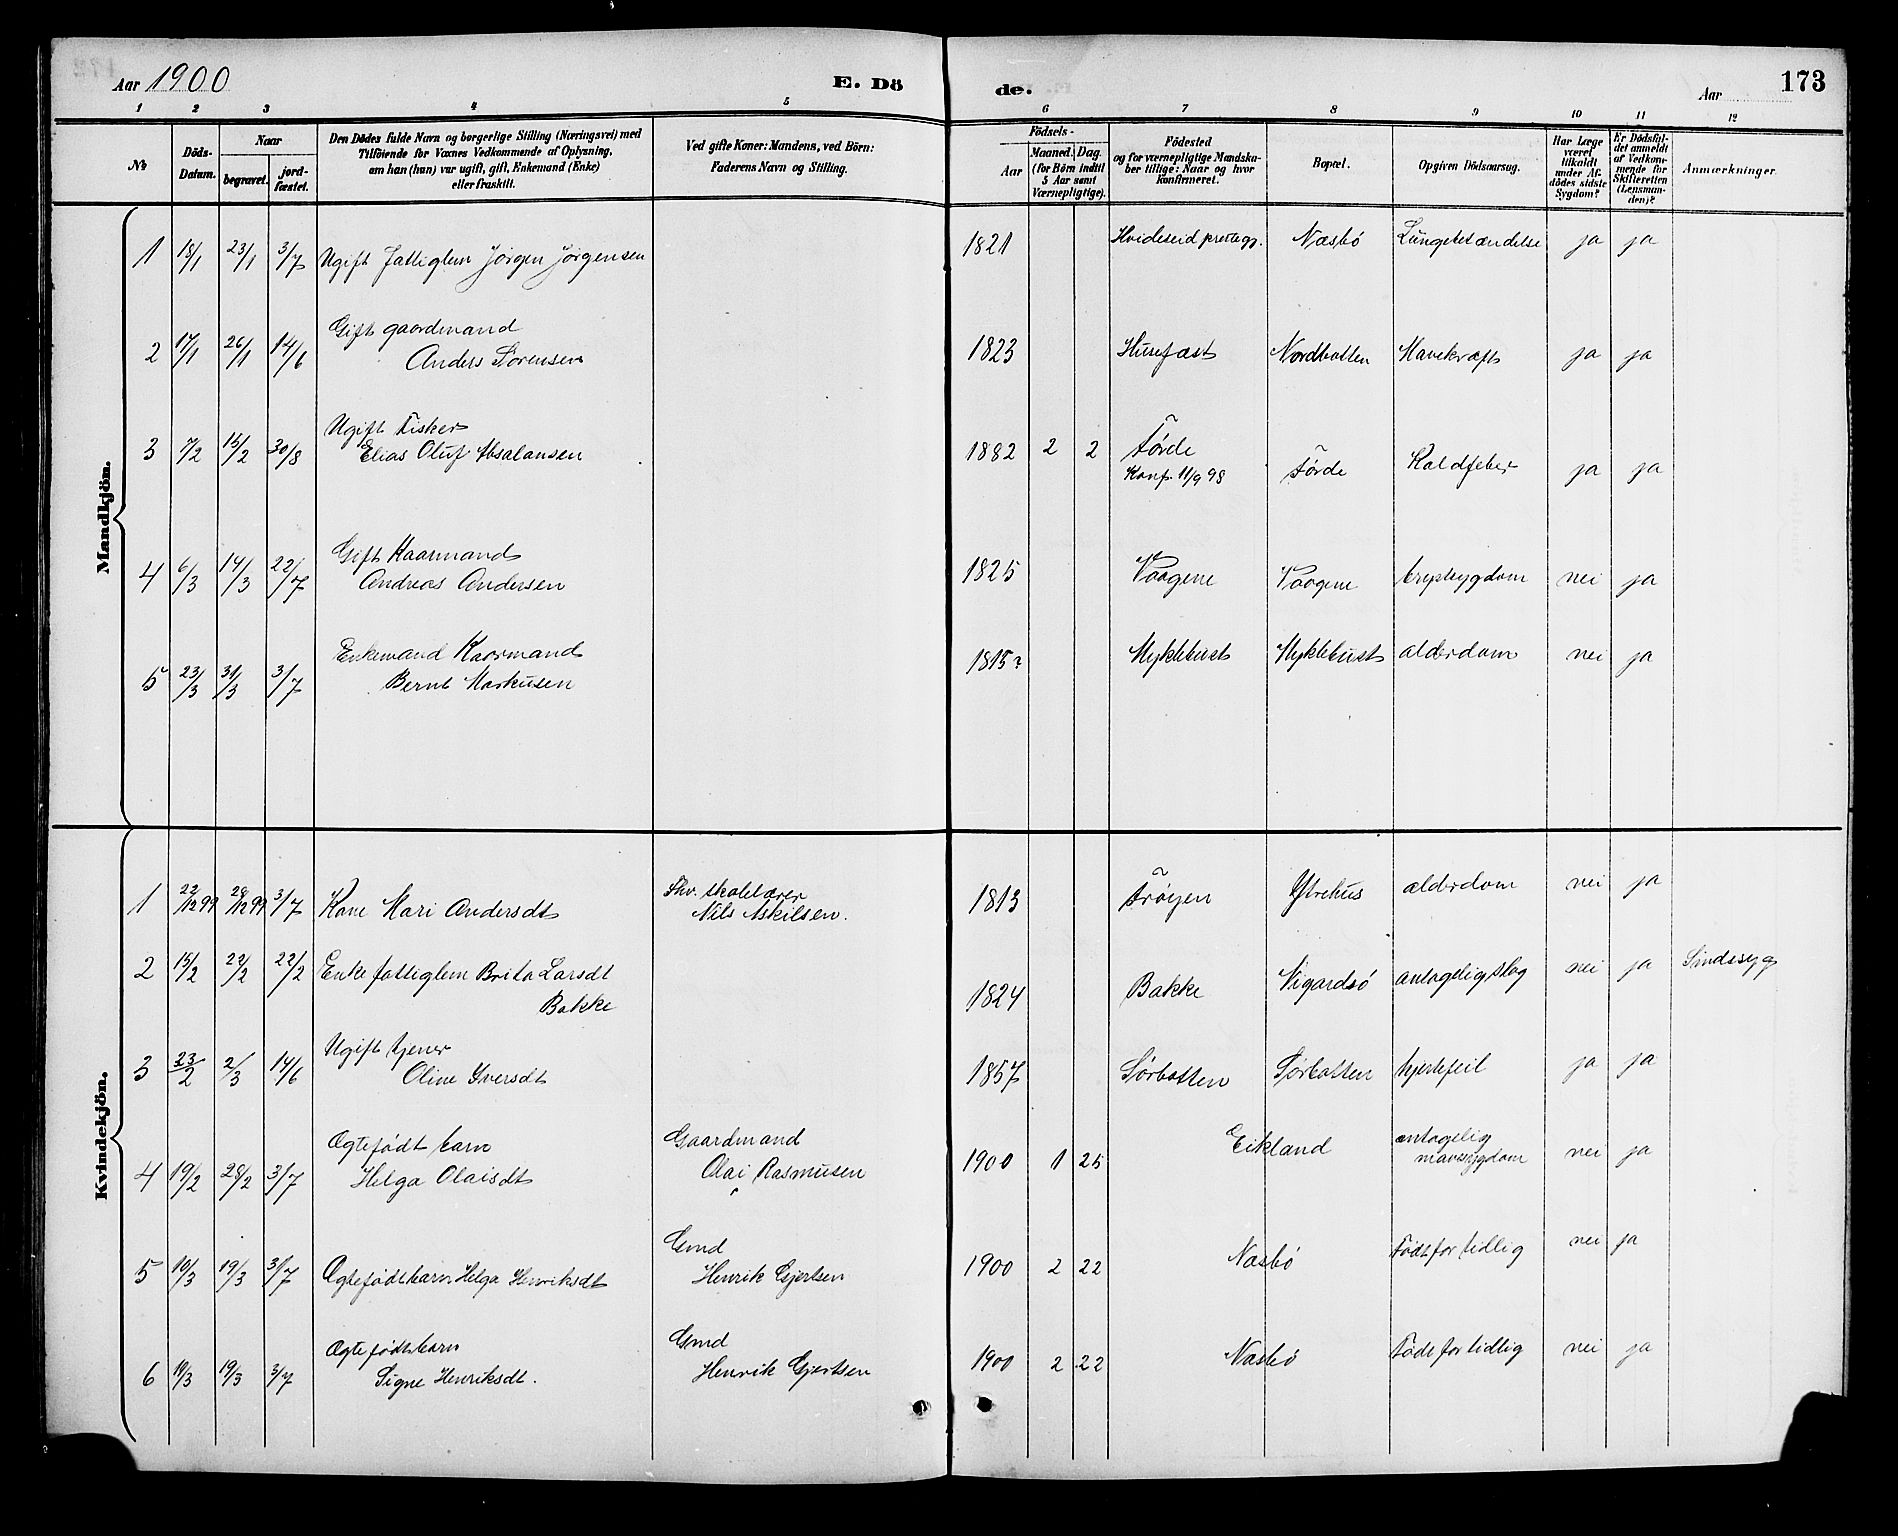 Aar 1900
E. Dö
de.
Aar
173
1 2 3 4 5 6 7 8 9 10 11 12
No
Döds-
Datum.
Naar
begravet.
jord-
fæstet.
Den Dödes fulde Navn og borgerlige Stilling (Næringsvei) med
Tilföiende for Voxnes Vedkommende af Oplysning,
om han (hun) var ugift, gift, Enkemand (Enke)
eller fraskilt.
Ved gifte Koner: Mandens, ved Börn:
Faderens Navn og Stilling.
Födsels-
Aar
Maaned.
Dag.
(for Börn indtil
5 Aar samt
Værnepligtige).
Födested
og for værnepligtige Mandska-
ber tillige: Naar og hvor
konfirmeret.
Bopæl.
Opgiven Dödsaarsag.
Har Læge
været
tilkaldt
under Af-
dödes sidste
Sygdom?
Er Dödsfal-
det anmeldt
af Vedkom-
mende for
Skifteretten
(Lensman-
den)?
Anmærkninger.
Mandkjön.
1 18/1 23/1 3/7 Ugift fattiglem Jörgen Jörgensen 1821 Hvideseid prestegj. Næsbö Lungebetændelse ja ja
Gift gaardmand
2 17/1 26/1 14/6 Anders Sörensen 1823 Husefæst Nordbotten Mavekræft ja ja
Ugift Fisker
3 7/2 15/2 30/8 Elias Oluf Absalonsen 1882 2 2 Förde Förde Koldfeber ja ja
Konf. 11/9 98
Gift Kaarmand
4 6/3 14/3 22/7 Andreas Andersen 1825 Vaagene Vaagene brystsygdom nei ja
Enkemand Kaarmand
5 23/3 31/3 3/7 Bernt Markusen 1815? Myklebust Myklebust alderdom nei ja
Kvindekjön.
1 22/12 99 28/12 99 3/7 Kone Mari Andersdt Fhv. skolelærer
Nils Askilsen. 1813 Fröyen Ytrehus alderdom nei ja
2 15/2 22/2 22/2 Enke fattiglem Brita Larsdt
Bakke 1824 Bakke Vigardsö antagelig slag nei ja Sindssyg
Ugift tjener
3 23/2 2/3 14/6 Oline Iversdt 1857 Sörbotten Sörbotten hjertefeil ja ja
Ægtefödt barn Gaardmand
4 19/2 28/2 3/7 Helga Olaisdt Olai Rasmusen 1900 1 25 Eikland antagelig
mavesygdom nei ja
Gmd
5 10/3 19/3 3/7 Ægtefödt barn Helga Henriksdt Henrik Gjertsen 1900 2 22 Næsbö Födt for tidlig nei ja
Ægtefödt barn Gmd
6 11/3 19/3 3/7 Signe Henriksdt. Henrik Gjertsen 1900 2 22 Næsbö Födt for tidlig nei ja